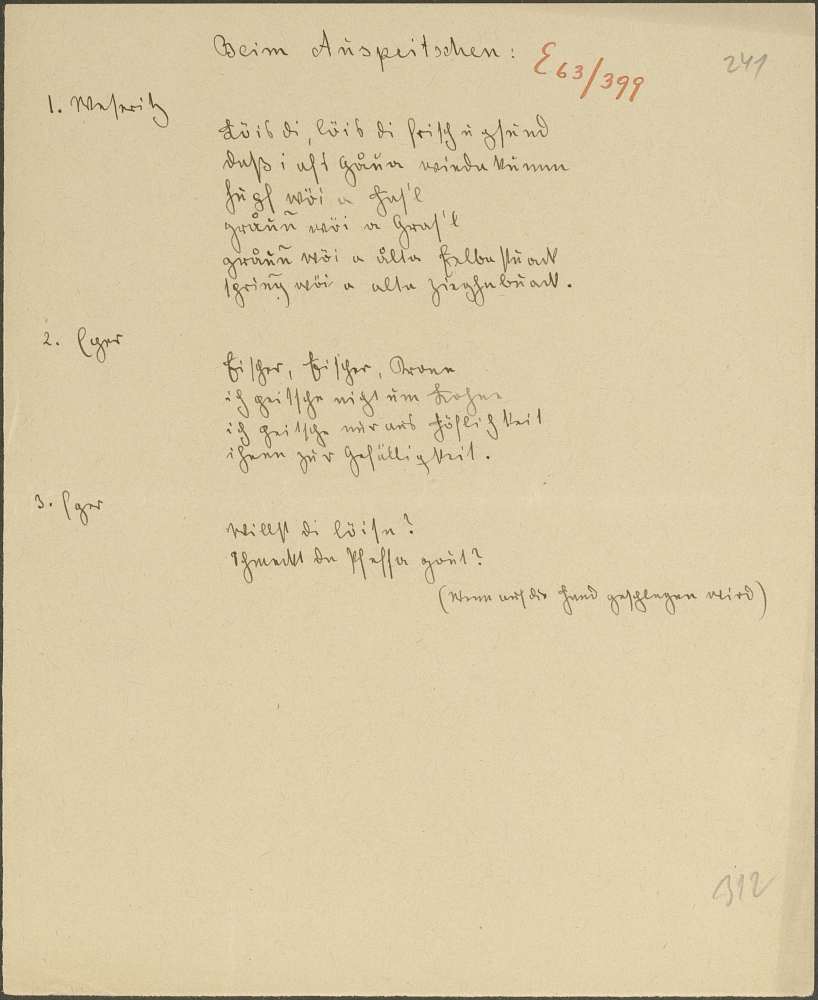 Beim Auspeitschen:
E 63/399
241
1. Weseritz
Löis di, löis di frisch u gsund
daß i afs Gåua wieda kumm
hupf wöi a Has'l
gråun wöi a Gras'l
gråun wöi a ålta Felbastuack
spring wöi a alta Zieghabuack.
2. Eger
Fischer, Fischer, Krone
ich peitsche nicht um Lohne
ich peitsche nur aus Höflichkeit
ihnen zur Gefälligkeit.
3. Eger
Willst di löisn?
Schmeckt da Pfeffa gout?
(Wenn auf die Hand geschlagen wird)
312